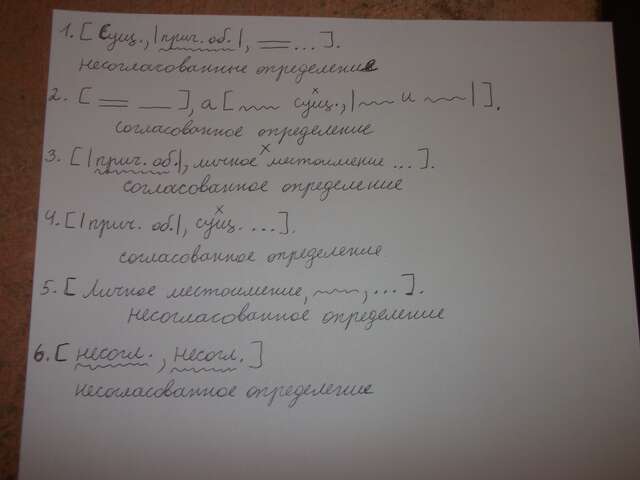 1. [Сущ., |прич. об.|, == ...].
несогласованные определение
2. [ == — ], а [ ~~~ сущ., | ~~~ и ~~~ | ].
согласованное определение
3. [ |прич. об.|, личное местоимение ... ].
согласованное определение
4. [ |прич. об.|, сущ. .... ].
согласованное определение
5. [ Личное местоимение, ~~~, ... ].
Несогласованное определение
6. [ несогл., несогл. ]
несогласованное определение